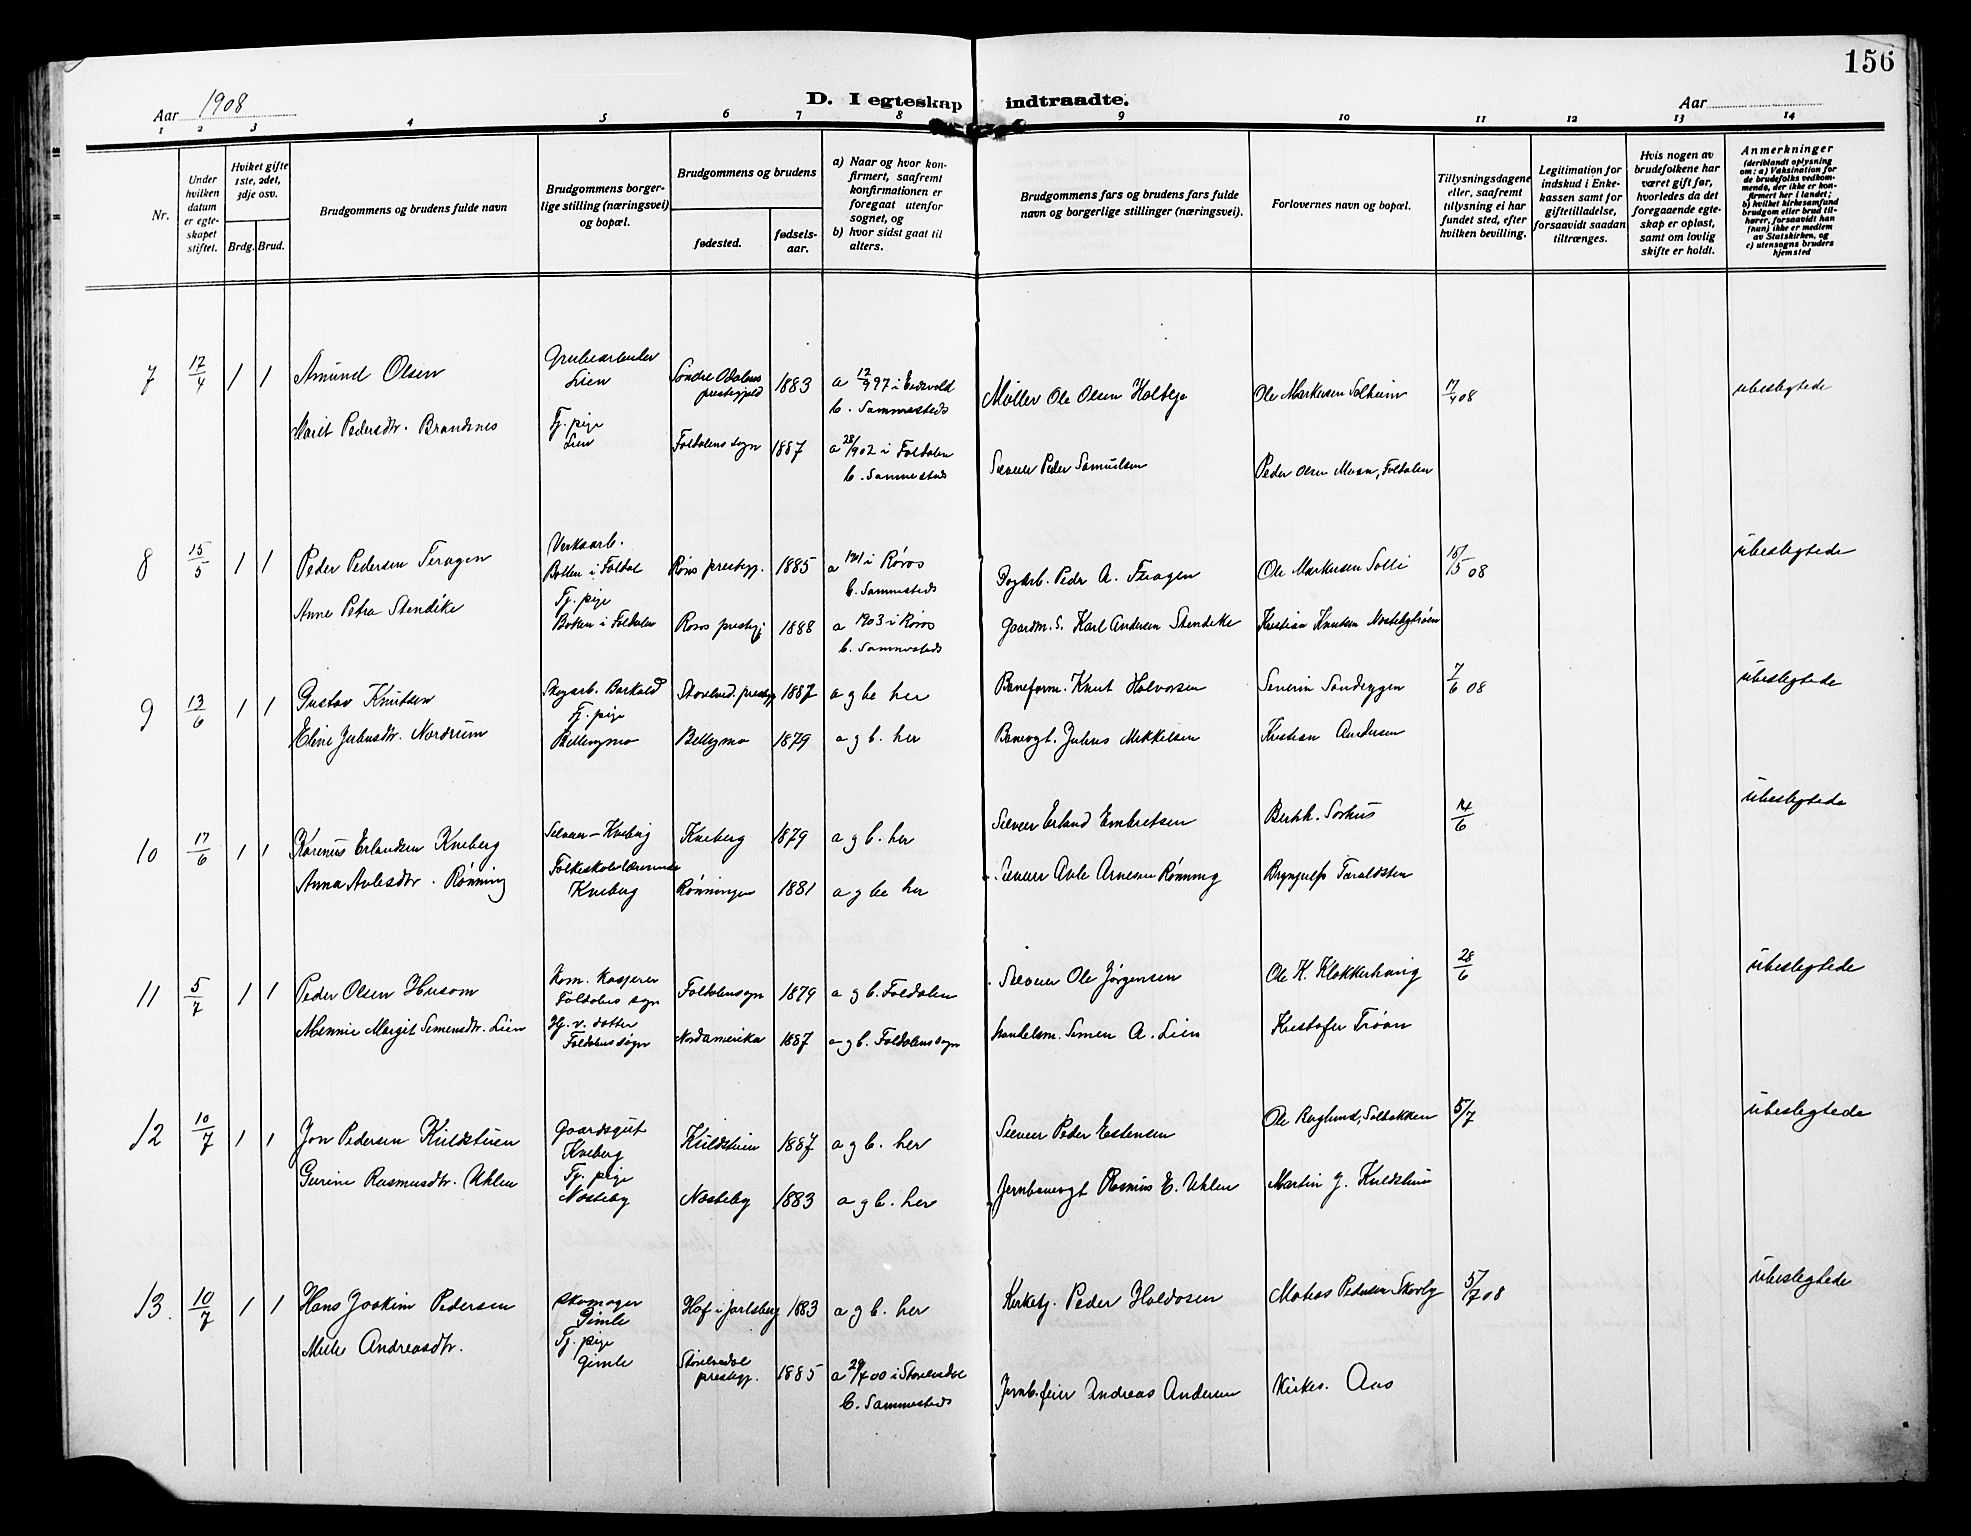 156
Aar 1908
D. I egteskap indtraadte.
Aar
1 2 3 4 5 6 7 8 9 10 11 12 13 14
Nr.
Under hvilken datum er egteskapet stiftet.
Hviket gifte 1ste, 2det, 3dje osv.
Brdg. Brud.
Brudgommens og brudens fulde navn
Brudgommens borgerlige stilling (næringsvei) og bopæl.
Brudgommens og brudens
fødested.
fødselsaar.
a) Naar og hvor konfirmert, saafremt konfirmationen er foregaat utenfor sognet, og
b) hvor sidst gaat til alters.
Brudgommens fars og brudens fars fulde navn og borgerlige stillinger (næringsvei).
Forlovernes navn og bopæl.
Tillysningsdagene eller, saafremt tillysning ei har fundet sted, efter hvilken bevilling.
Legitimation for indskud i Enkekassen samt for giftetilladelse, forsaavidt saadan tiltrænges.
Hvis nogen av brudefolkene har været gift før, hvorledes da det foregaaende egteskap er opløst, samt om lovlig skifte er holdt.
Anmerkninger
(deriblandt oplysning om: a) Vaksination for de brudefolks vedkommende, der ikke er konfirmert her i landet; b) hvilket kirkesamfund brudgom eller brud tilhører, forsaavidt han (hun) ikke er medlem av Statskirken, og c) utensogns bruders hjemsted
7 12/4 1 1 Amund Olsen Grubearbeider Lien Søndre Odalens prestegjeld 1883 a 12/9 97 i Eidsvold b. Sammesteds Møller Ole Olsen Ole Markusen Solheim 08 ubeslegtede
Marit Pedersdtr. Brandsnes Tj. pige Lien Foldalens sogn 1887 a 28/ 902 i Foldalen b. Sammesteds Selveier Peder Samuelsen Peder Olsen Moan, Foldalen
8 15/5 1 1 Peder Pedersen Feragen Verksarb. Botten i Foldal Røros prestegj. 1885 a 1901 i Røros b. Sammesteds Peder A. Feragen Ole Markusen Solli 15/5 08 ubeslegtede
Anne Petra Stendike Tj. pige Botten i Foldalen Røros prestegj 1888 a 1903 i Røros b. Sammesteds Gaardm. S. Karl Andersen Stendike Kristian Knutsen
9 13/6 1 1 Gustav Knutsen Skogarb. Barkald Storelved. prestegj 1887 a g be her Baneform. Knut Halvorsen Severin 7/6 08 ubeslegtede
Eline Juliusdtr. Nordrum Tj. pige Bellingmo Bellingmo 1879 a g b. her Banevogt. Julius Mikkelsen Kristian Andersen
10 17/6 1 1 Karenius Erlandsen Kveberg Selveier – Kveberg Kveberg 1879 a g b. her Selveier Erland Embretsen Berth. Sorhus 14/6 ubeslegtede
Anna Avlesdtr. Rønning Folkeskolelærerinde Kveberg Rønningen 1881 a g be her Selveier Avle Arnesen Rønning Brynjulf Taraldsten
11 5/7 1 1 Peder Olsen Husom Kom. kasserer Foldalens sogn Foldalensogn 1879 a g b. Foldalen Selveier Ole Jørgensen Ole K. Klokkerhaug 28/6 ubeslegtede
Mennie Margit Semensdtr. Lien Hj. v. datter Foldalens sogn Nordamerika 1887 a g b. Foldalens sogn Handelsm. Semen A. Lien Kristofer Trøan
12 10/7 1 1 Jon Pedersen Kuldstuen Gaardsgut Kveberg Kuldstuen 1887 a g b. her Selveier Peder Estensen Ole Berglund, Solbakken 5/7 ubeslegtede
Gurine Rasmusdtr. Uhlen Tj. pige Nesteby Nesteby 1883 a g b. her Jernbanevogt Rasmus E. Uhlen Martin J. Kuldstuen
13. 10/7 1 1 Hans Joakim Pedersen Skomager Gimle Hof i Jarlsberg 1883 a g b. her Kirketj. Peder Haldosen Matias Pedersen Skovly 5/7 08 ubeslegtede
Andreasdtr. Tj. pige Gimle Storelvedal prestegj. 1885 a 29/7 00 i Storelvedal b. Sammesteds Andreas Andersen Aas